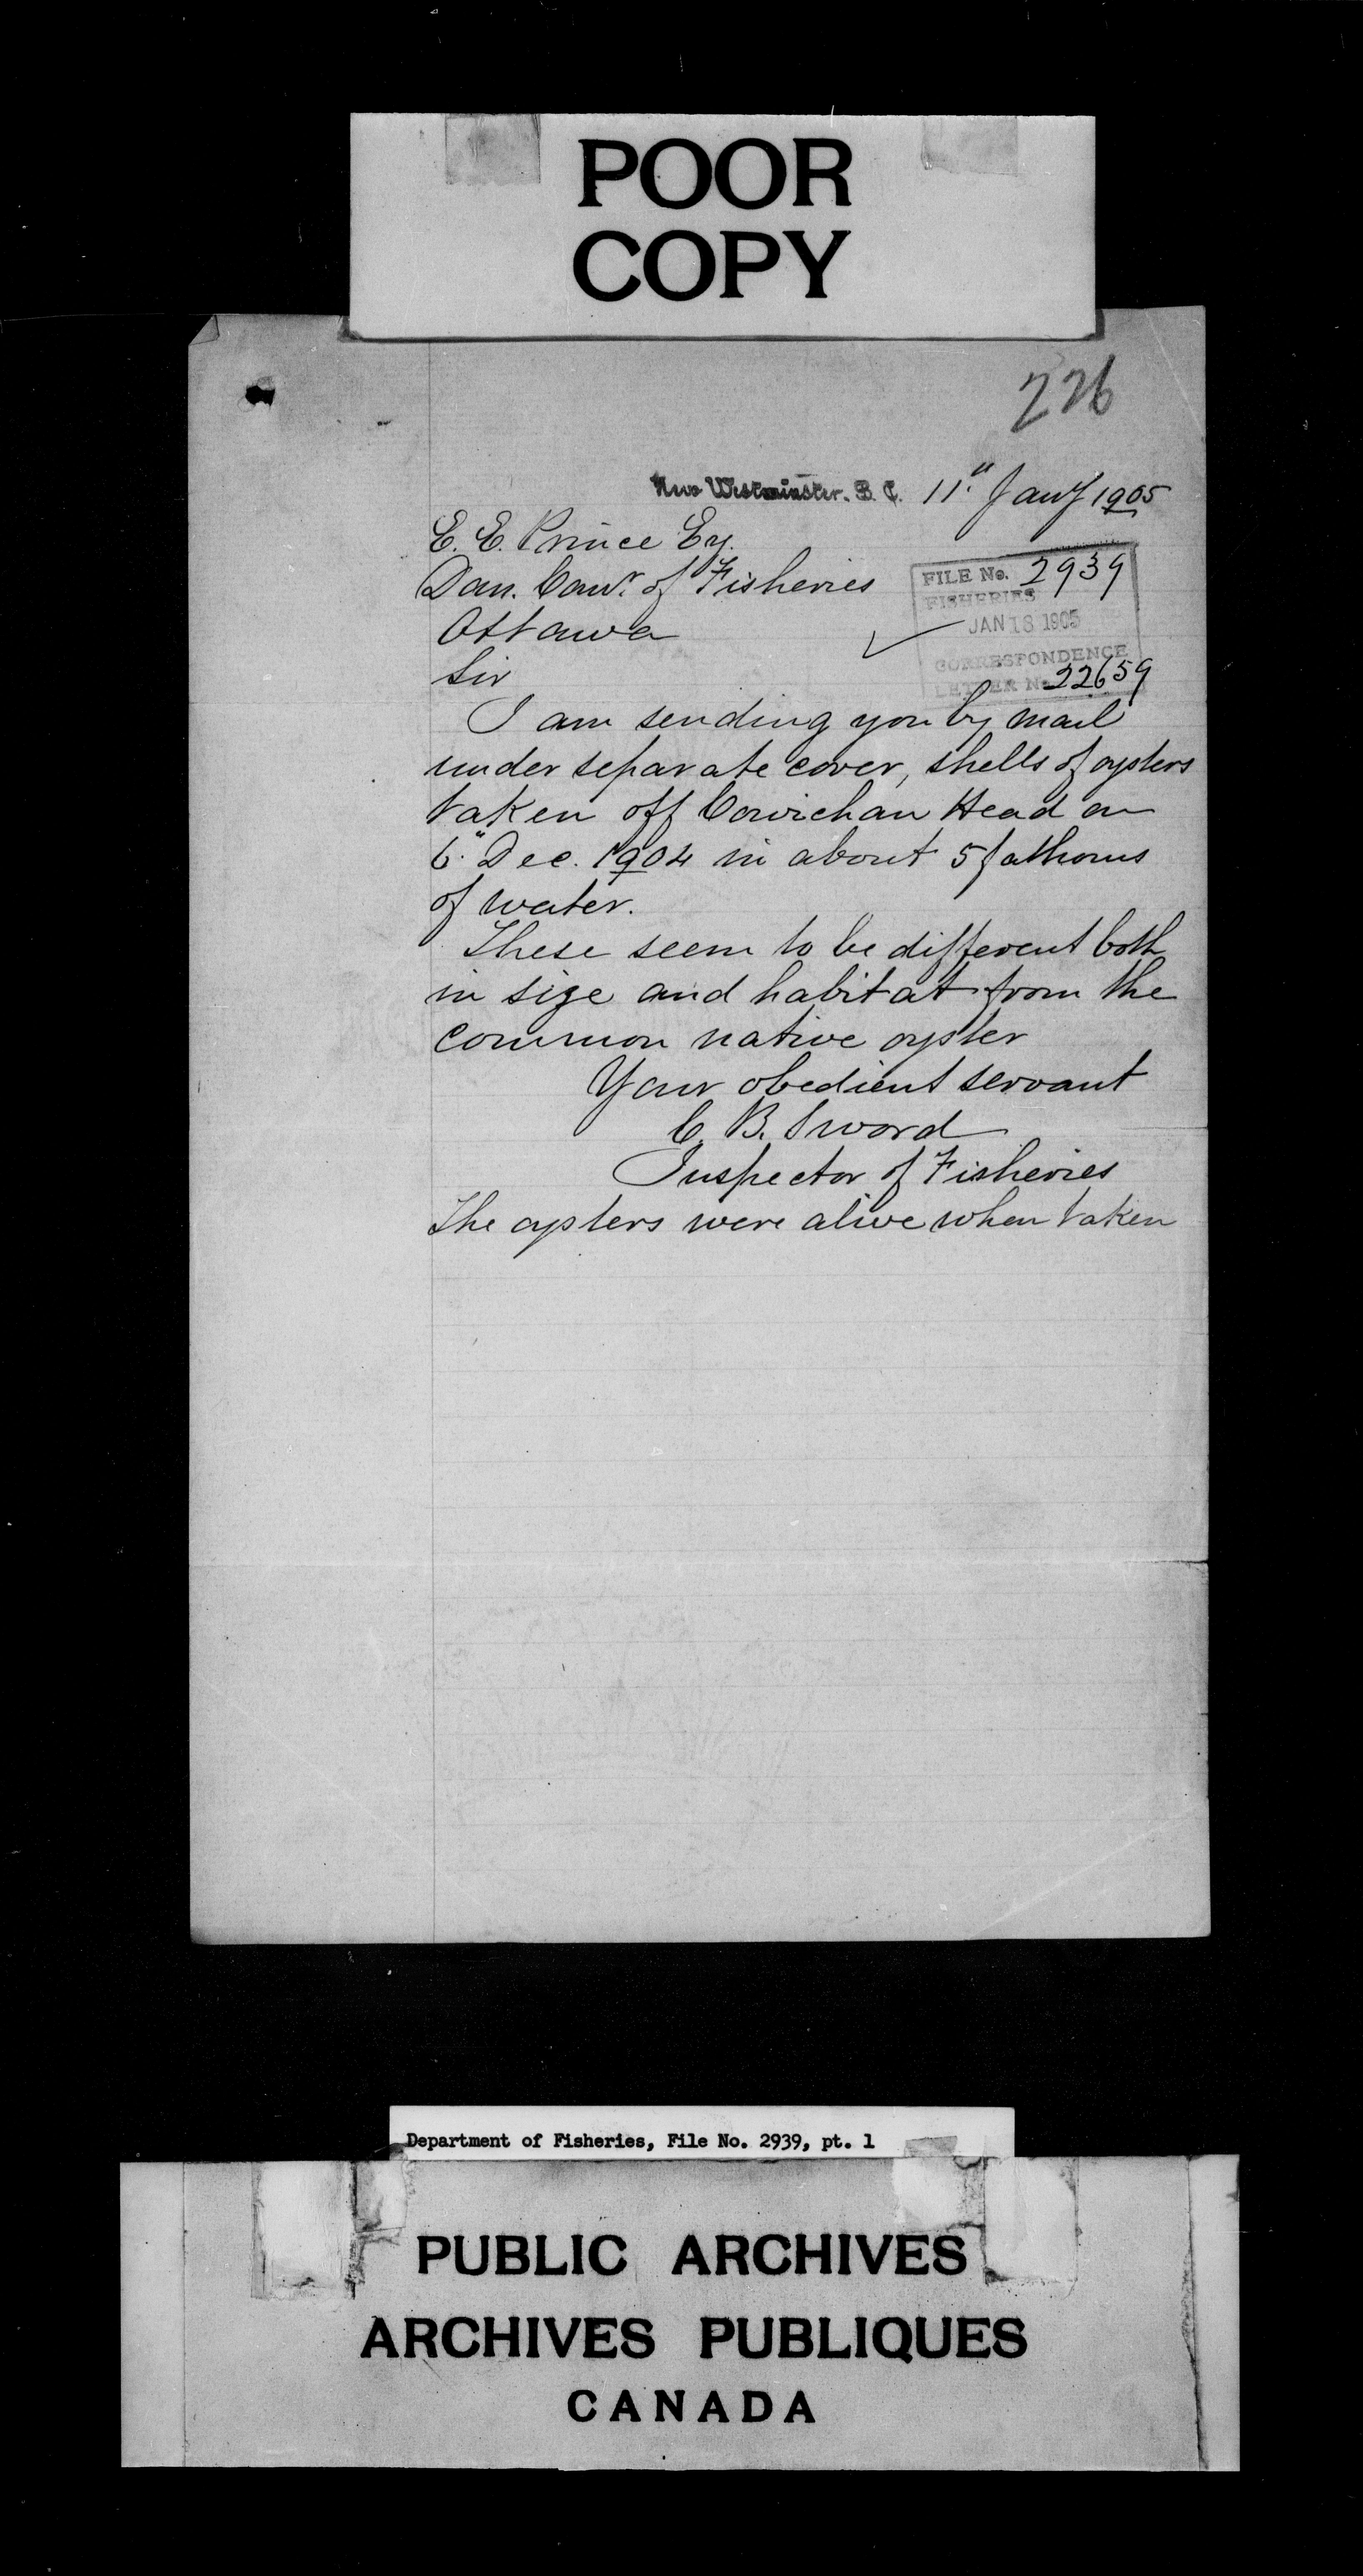 POOR
COPY
226
New Westminster, B. C. 11th Jany 1905
E. E. Prince Esq.
Dom. Comr. of Fisheries
Ottawa
FILE No. 2939
FISHERIES
JAN 18 1905
CORRESPONDENCE
LETTER No. 22659
Sir
I am sending you by mail
under separate cover, shells of oysters
taken off Cowichan Head on
6" Dec. 1904 in about 5 fathoms
of water.
These seem to be different both
in size and habitat from the
common native oyster
Your obedient servant
C. B. Sword
Inspector of Fisheries
The oysters were alive when taken
Department of Fisheries, File No. 2939, pt. 1
PUBLIC ARCHIVES
ARCHIVES PUBLIQUES
CANADA